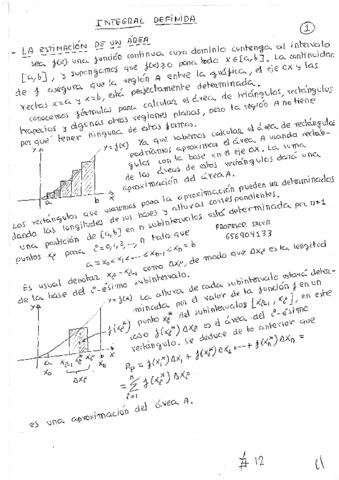 INTEGRAL DEFINIDA
1
- LA ESTIMACIÓN DE UN ÁREA
Sea f(x) una función continua cuyo dominio contenga al intervalo
[a,b], y supongamos que f(x)≥0 para todo x∈[a,b]. La continuidad
de f asegura que la región A entre la gráfica, el eje OX y las
rectas x=a y x=b, está perfectamente determinada.
Conocemos fórmulas para calcular el área de triángulos, rectángulos
trapecios y algunas otras regiones planas, pero la región A no tiene
por qué tener ninguna de estas formas.
y
y=f(x)
Ya que sabemos calcular el área de rectángulos
podríamos aproximar el área A usando rectán-
gulos con la base en el eje OX. La suma
de las áreas de estos rectángulos dará una
aproximación del área A.
a b x
Los rectángulos que usaremos para la aproximación pueden ser determinados
dando las longitudes de sus bases y alturas correspondientes.
una partición de [a,b] en n subintervalos está determinada por n+1
puntos
para i=0,1,2,..,n tal que
PROFESOR
656904133
a=x₀<x₁<...<xₙ=b
Es usual denotar
como
de modo que
es la longitud
de la base del i-ésimo subintervalo.
y
y=f(x)
La altura de cada subintervalo estará deter-
minada por el valor de la función f en un
punto
del subintervalo
en este
caso
es el área del i-ésimo
rectángulo. Se deduce de lo anterior que
a
b
x
es una aproximación del área A.
# 12